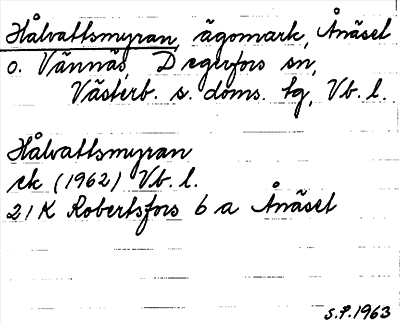 Hålvattsmyran, ägomark, Ånäset
o. Vännäs, Degerfors sn,
Västerb. s. doms. tg, Vb. l.
Hålvattsmyran
ek (1962) Vb. l.
21K Robertsfors 6 a Ånäset
S.P. 1963